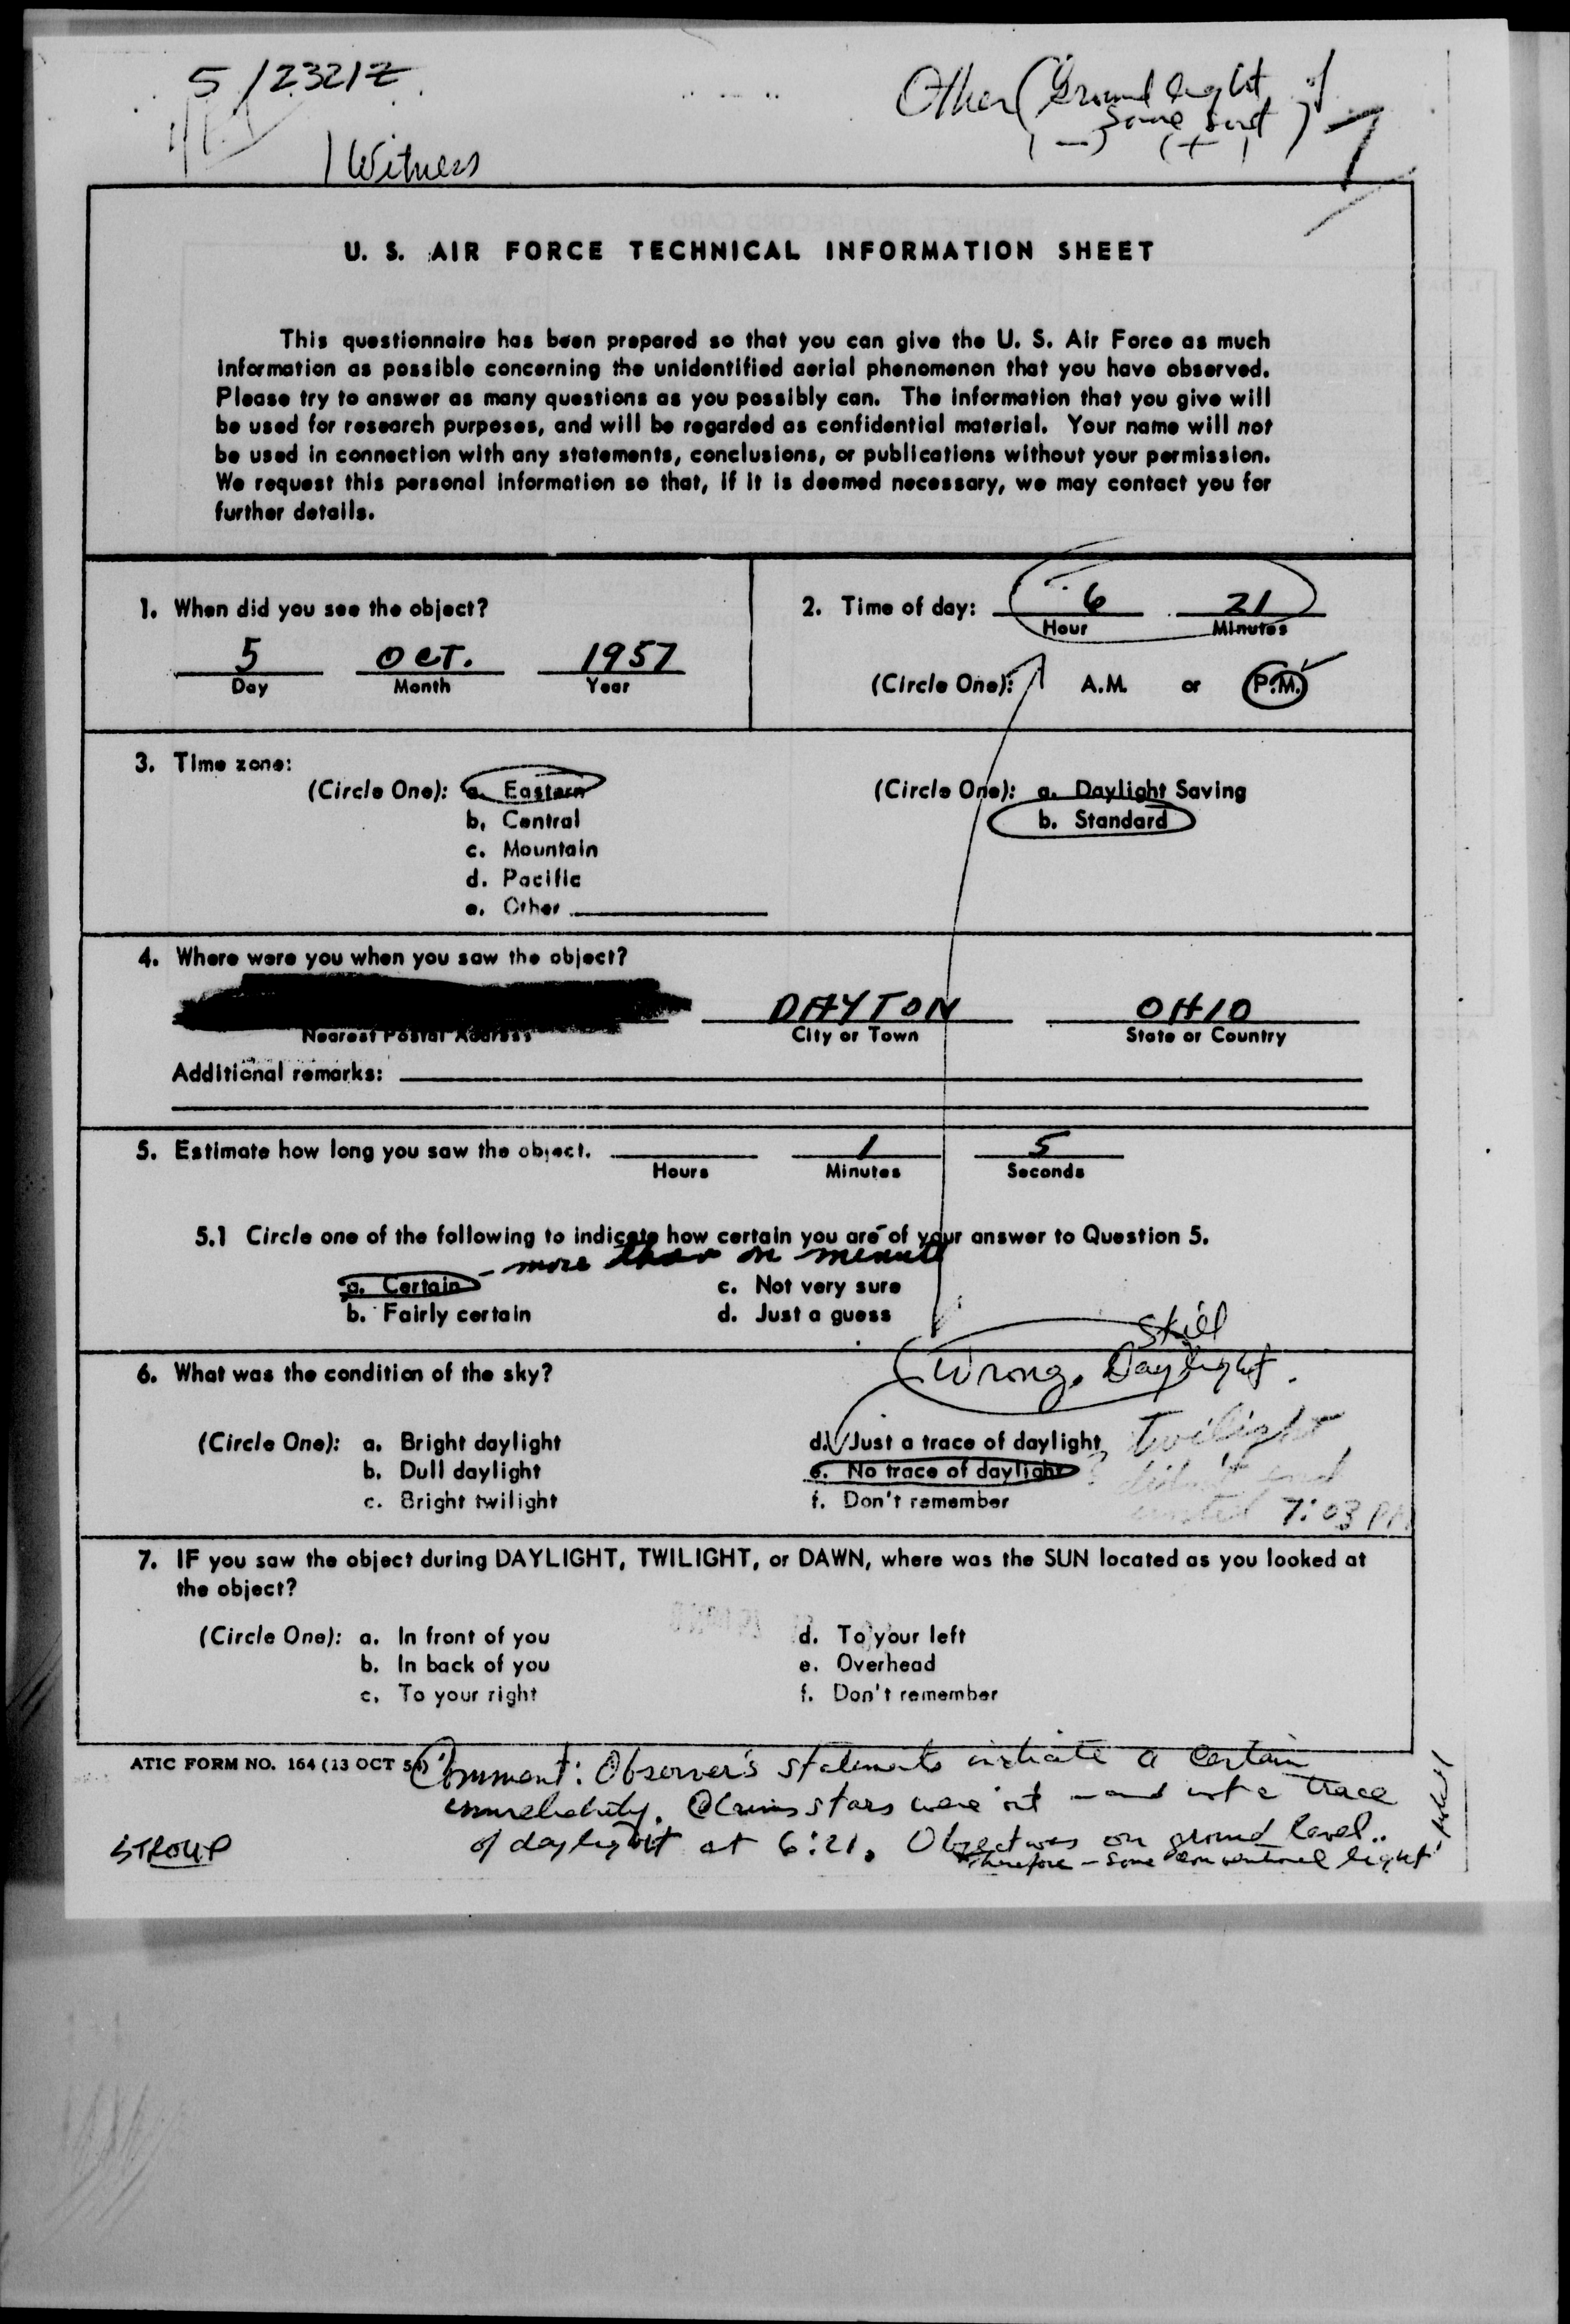 5/2321Z
Other (Ground light of
some sort)
(-) (+)
1 Witness
U. S. AIR FORCE TECHNICAL INFORMATION SHEET
This questionnaire has been prepared so that you can give the U. S. Air Force as much
information as possible concerning the unidentified aerial phenomenon that you have observed.
Please try to answer as many questions as you possibly can. The information that you give will
be used for research purposes, and will be regarded as confidential material. Your name will not
be used in connection with any statements, conclusions, or publications without your permission.
We request this personal information so that, if it is deemed necessary, we may contact you for
further details.
1. When did you see the object?
5 OCT. 1957
Day Month Year
2. Time of day: 6 21
Hour Minutes
(Circle One): A.M. or P.M.
3. Time zone:
(Circle One): a. Eastern
b. Central
c. Mountain
d. Pacific
e. Other
(Circle One): a. Daylight Saving
b. Standard
4. Where were you when you saw the object?
DAYTON OHIO
Nearest Postal Address City or Town State or Country
Additional remarks:
5. Estimate how long you saw the object. 1 5
Hours Minutes Seconds
5.1 Circle one of the following to indicate how certain you are of your answer to Question 5.
- more than on minute
a. Certain c. Not very sure
b. Fairly certain d. Just a guess
still
Wrong. Daylight.
6. What was the condition of the sky?
(Circle One): a. Bright daylight
b. Dull daylight
c. Bright twilight
d. Just a trace of daylight
e. No trace of daylight
f. Don't remember
twilight
didn't end
until 7:03 PM
7. IF you saw the object during DAYLIGHT, TWILIGHT, or DAWN, where was the SUN located as you looked at
the object?
(Circle One): a. In front of you
b. In back of you
c. To your right
d. To your left
e. Overhead
f. Don't remember
ATIC FORM NO. 164 (13 OCT 54)
Comment: Observer's statements indicate a certain
unreliability. Claims stars were out - and not a trace
of daylight at 6:21. Object was on ground level..
therefore - some conventional light
STROUP